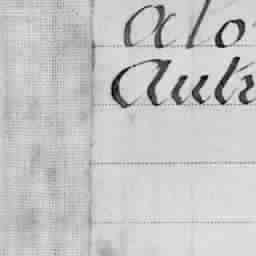 alo
Autr